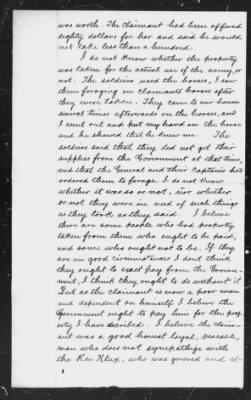 was worth. The claimant had been offered
eighty dollars for her and said he would
not take less than a hundred.
I do not know whether the property
was taken for the actual use of the army, or
not. The soldiers used the horses, I saw
them foraging on claimants horses after
they were taken. They came to our house
several times afterwards on the horses, and
I went out and put my hand on the horse
and he showed that he knew me. The
soldiers said that they did not get their
supplies from the Government at that time,
and that the General and their Captains had
ordered them to forage. I do not know
whether it was so or not, nor whether
or not they were in need of such things
as they took as they said. I believe
there are some people who had property
taken from them who ought to be paid,
and some who ought not to be. If they
are in good circumstances I dont think
they ought to exact pay from the Govern-
ment, I think they ought to do without it
But as the claimant is now a poor man
and dependent on himself I believe the
Government ought to pay him for the prop-
erty I have described. I believe the claim-
ant was a good honest loyal, peaceable,
man who does not sympathize with
the Ku Klux, who was grieved and